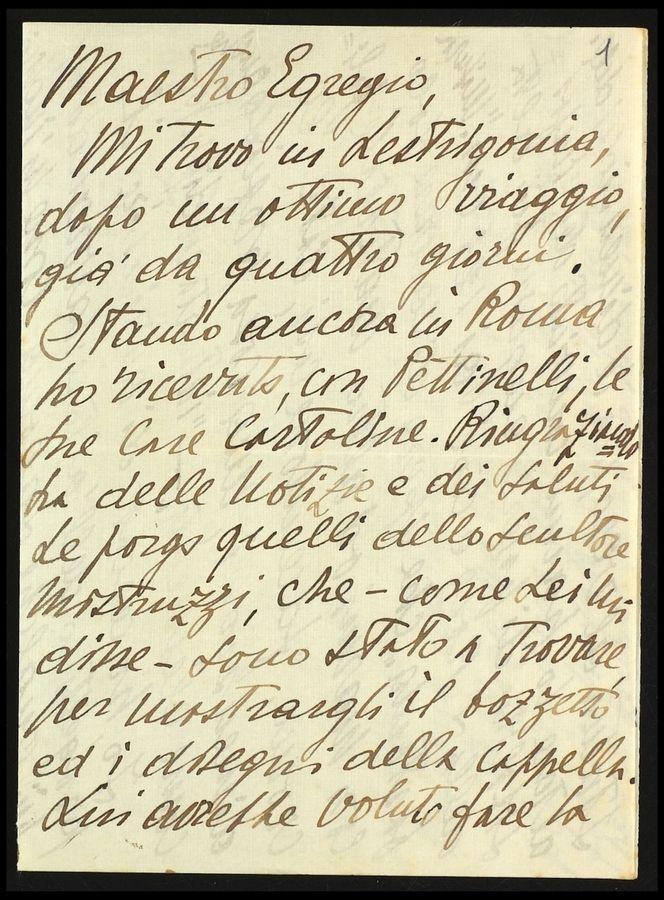 1
Maestro Egregio,
Mi trovo in Lestrigonia,
dopo un ottimo viaggio,
già da quattro giorni.
Stando ancora in Roma
ho ricevuto, con Pettinelli, le
sue care cartoline. Ringrazian=
do
La delle notizie e dei saluti
Le porgo quelli dello scultore
Mistruzzi, che - come Lei mi
disse - sono stato a trovare,
per mostrargli il bozzetto
ed i disegni della Cappella.
Lui avrebbe voluto fare la